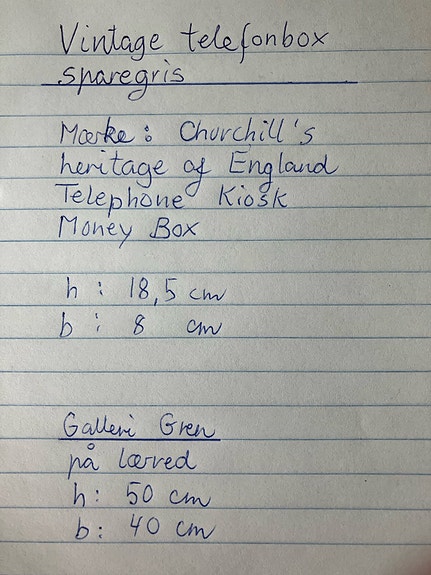 Vintage telefonbox
sparegris
Mærke: Churchill's
heritage of England
Telephone Kiosk
Money Box
h: 18,5 cm
b: 8 cm
Galleri Gren
på lærred
h: 50 cm
b: 40 cm